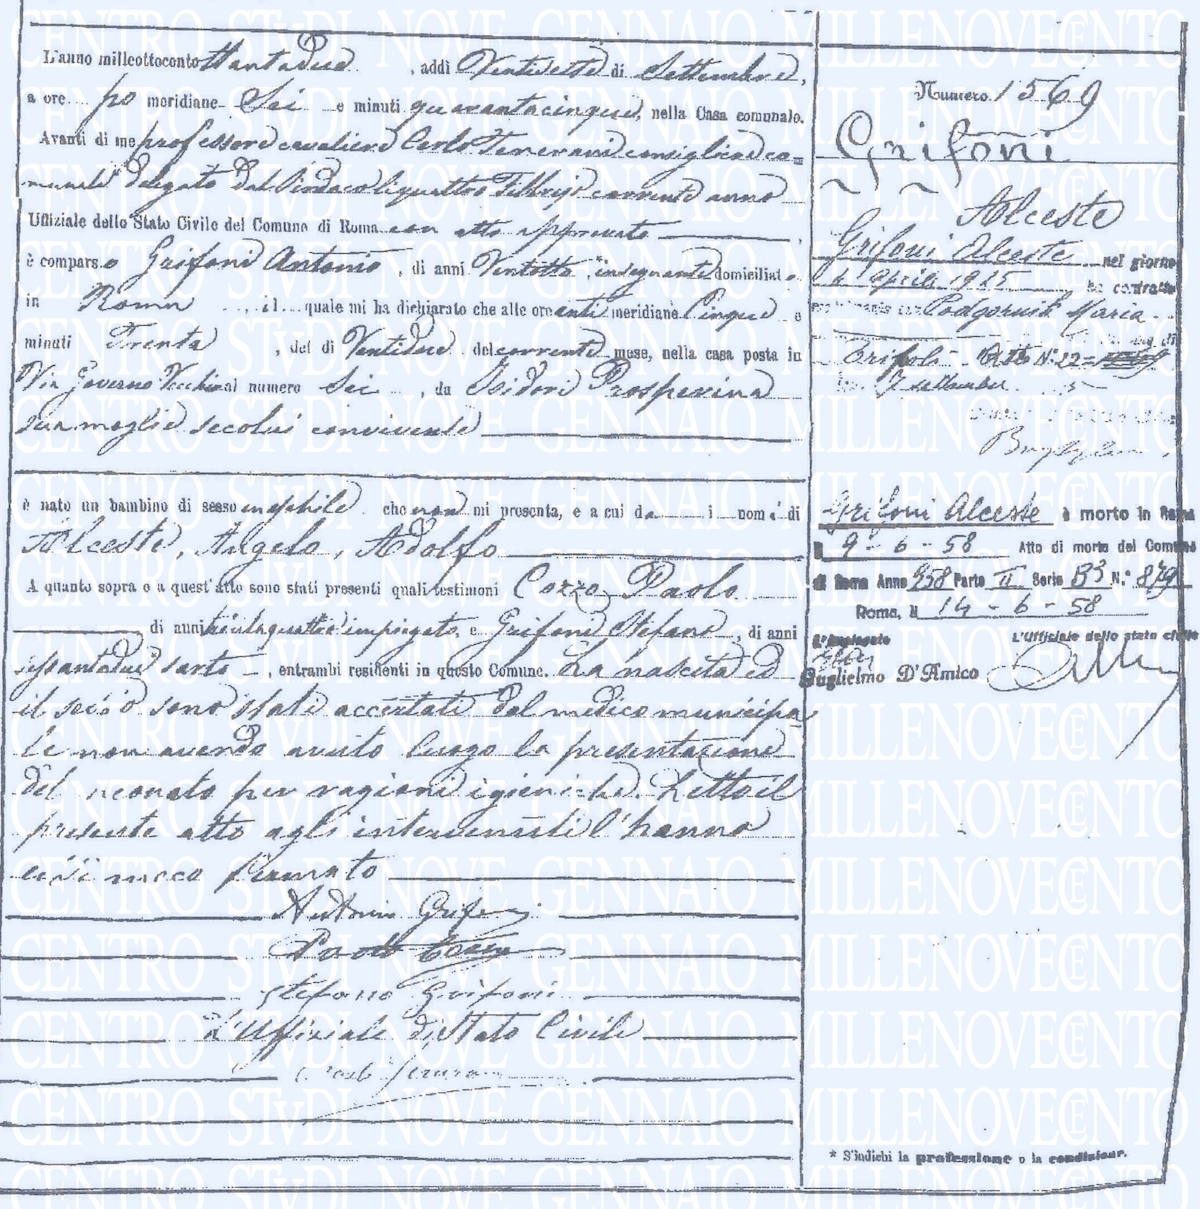 L'anno milleottocento ttantadue, addì Ventisette di Settembre,
a ore po meridiane Sei e minuti quarantacinque, nella Casa comunale.
Avanti di me professore cavaliere Carlo Tenerani consigliere co=
munale delegato dal Sindaco li quattro Febbraio corrente anno
Uffiziale dello Stato Civile del Comune di Roma con atto approvato,
è comparso Grifoni Antonio, di anni Ventotto, insegnante domiciliato
in Roma, il quale mi ha dichiarato che alle ore anti meridiane Cinque e
minuti Trenta, del dì Ventidue del corrente mese, nella casa posta in
Via Governo Vecchio al numero Sei, da Isidori Prosperina
sua moglie secolui convivente
è nato un bambino di sesso maschile che non mi presenta, e a cui da i nomi di
Alceste, Angelo, Adolfo
A quanto sopra e a quest'atto sono stati presenti quali testimoni Cozzo Paolo
di anni impiegato, e Grifoni Stefano, di anni
sessantadue sarto, entrambi residenti in questo Comune. La nascita ed
il sesso sono stati accertati dal medico municipa
le non avendo avuto luogo la presentazione
del neonato per ragioni igieniche. Letto il
presente atto agli intervenuti l'hanno
con meco firmato
Antonio Grifoni
Paolo Cozzo
Stefano Grifoni
L'Uffiziale di Stato Civile
Numero 1569
Grifoni
Alceste
Grifoni Alceste nel giorno
aprile 1915 ha contratto
matrimonio con Podgornik Maria
Tripoli Atto N. 22
7 settembre
Grifoni Alceste è morto in Roma
il 9-6-58 Atto di morte del Comune
di Roma Anno 958 Parte II Serie B3 N. 879
Roma, li 14-6-58
L'Impiegato L'Ufficiale dello stato civile
Guglielmo D'Amico
* S'indichi la professione o la condizione.
CENTRO STVDI NOVE GENNAIO MILLENOVECENTO